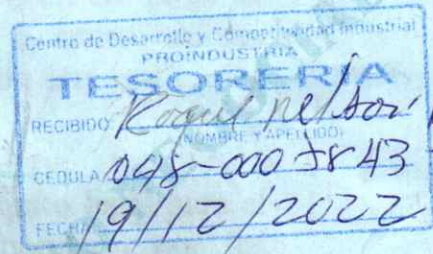 Centro de Desarrollo y Competitividad Industrial
PROINDUSTRIA
TESORERÍA
RECIBIDO Roque Nelson
(NOMBRE Y APELLIDO)
CEDULA 048-0007843
FECHA 19/12/2022